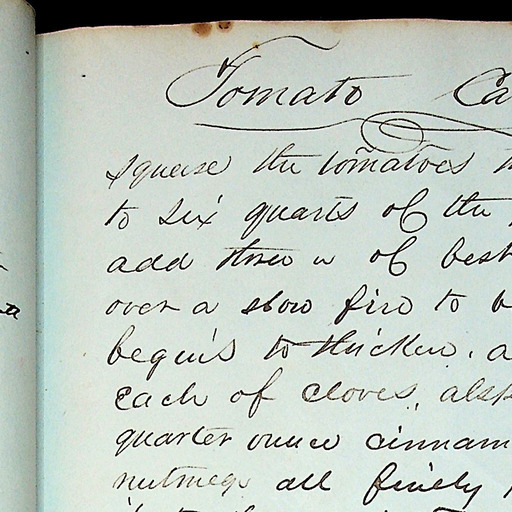 Tomato Ca
squeese the tomatoes
to six quarts of the
add three " of best
over a slow fire to b
begins to thicken. a
each of cloves, alsp
quarter ounce cinnam
nutmegs all finely